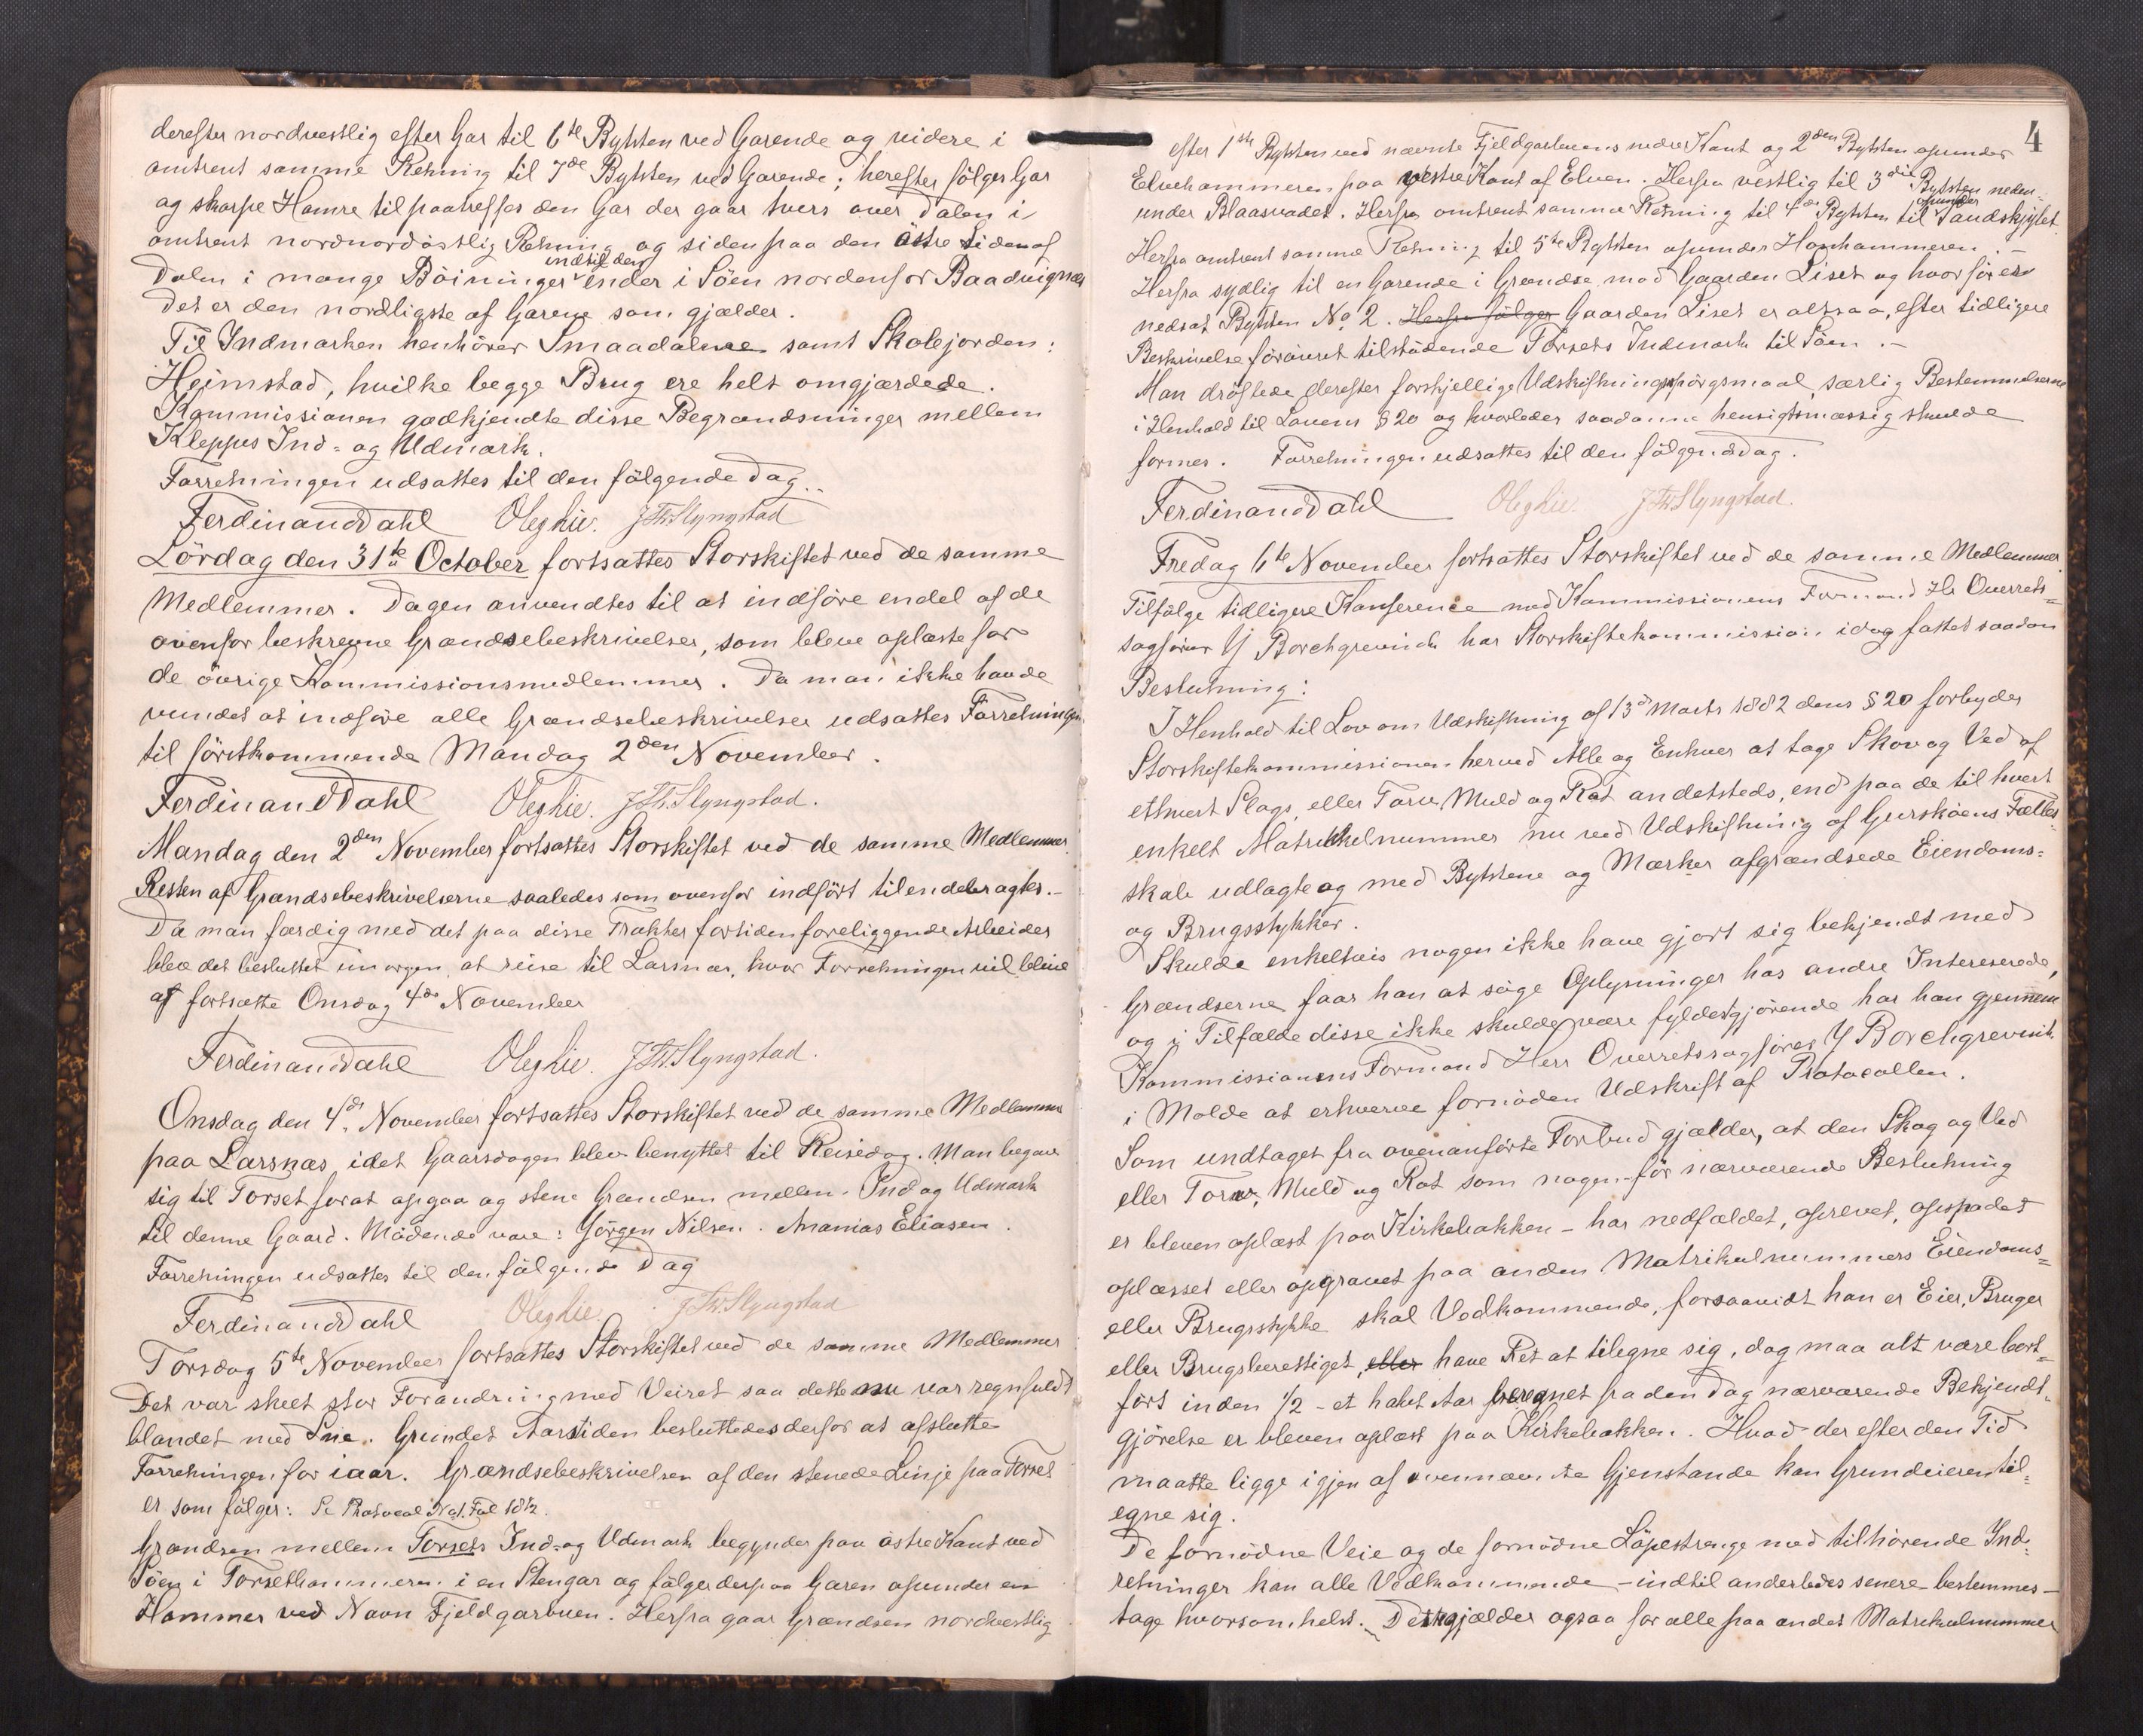 derefter nordvestlig efter Gar til 6te Bytsten ved Garende og videre i
omtrent samme Retning til 7de Bytsten ved Garende; herefter følger Gar
og skarpe Hamre til paatreffes den Gar der gaar tvers over Dalen i
omtrent nordnordöstlig Retning og siden paa den östre Siden af
indtil den
Dalen i mange Böininger ender i Söen nordenfor Baadvignæs
Det er den nordligste af Garene som gjælder.
Til Indmarken henhörer Smaadalene samt Skolejorden:
Heimstad, hvilke begge Brug ere helt omgjærdede.
Kommissionen godkjendte disse Begrændsninger mellem
Kleppes Ind- og Udmark.
Forretningen udsattes til den fölgende Dag.
Ferdinand Dahl Ole Hie. J Th. Slyngstad
Lördag den 31te October fortsattes Storskiftet ved de samme
Medlemmer. Dagen anvendtes til at indföre endel af de
ovenfor beskrevne Grændsebeskrivelser, som bleve oplæste for
de övrige Kommissionsmedlemmer. Da man ikke havde
vundet at indföre alle Grændsebeskrivelser udsattes Forretningen
til förstkommende Mandag 2den November.
Ferdinand Dahl Ole Hie. J Th. Slyngstad.
Mandag den 2den November fortsattes Storskiftet ved de samme Medlemmer.
Resten af Grændsebeskrivelserne saaledes som ovenfor indfört tilendebragtes.-
Da man færdig med det paa disse Trakter fortiden foreliggende Arbeider
blev det besluttet imorgen at reise til Larsnæs, hvor Forretningen vil blive
at fortsætte Onsdag 4de November
Ferdinand Dahl Ole Hie. J Th. Slyngstad.
Onsdag den 4de November fortsattes Storskiftet ved de samme Medlemmer
paa Larsnæs, idet Gaarsdagen blev benyttet til Reisedag. Man begav
sig til Torset forat opgaa og stene Grændsen mellem Ind og Udmark
til denne Gaard. Mödende vare: Jörgen Nilsen. Ananias Eliasen.
Forretningen udsattes til den fölgende Dag
Ferdinand Dahl Ole Hie. J Th. Slyngstad
Torsdag 5te November fortsattes Storskiftet ved de samme Medlemmer
Det var skeet stor Forandring med Veiret saa dette nu var regnfuldt
blandet med Sne. Grundet Aarstiden besluttedes derfor at afslutte
Forretningen for iaar. Grændsebeskrivelsen af den stenede Linje paa Torset
er som fölger: Se Protocol No 1. Fol
Grændsen mellem Torsets Ind- og Udmark begynder paa östre Kant ved
Söen i Torsethammeren i en Stengar og fölger derpaa Garen opunder en
Hammer ved Navn Fjeldgarbuen. Herfra gaar Grændsen nordvestlig
4
efter 1ste Bytsten ved nævnte Fjeldgarbuens nedre Kant og 2den Bytsten opunder
Elvehammeren paa vestre Kant af Elven. Herfra vestlig til 3die Bytsten neden-
opunder
under Blaasvadet. Herfra omtrent samme Retning til 4de Bytsten til Sandskjylet.
Herfra omtrent samme Retning til 5te Bytsten opunder Honhammeren.-
Herfra sydlig til en Garende i Grændse mod Gaarden Liset og hvor för er
nedsat Bytsten No 2. Herfra fölger Gaarden Liset er altsaa, efter tidligere
Beskrivelse foröuret tilstödende Torsets Indmark til Söen.-
Man dröftede derefter forskjellige Udskiftningsspörgsmaal, særlig Bestemmelserne
i Henhold til Lovens § 20 og hvorledes saadanne hensigtsmæssig skulde
formes. Forretningen udsattes til den fölgende Dag.
Ferdinand Dahl Ole Hie. J Th. Slyngstad.
Fredag 6te November fortsattes Storskiftet ved de samme Medlemmer.
Tilfölge tidligere Konference med Kommissionens Formand Hr Overrets-
sagförer Y Borchgrevink har Storskiftekommission idag fattet saadan
Beslutning:
I Henhold til Lov om Udskiftning af 13de Marts 1882 dens § 20 forbyder
Storskiftekommissionen herved Alle og Enhver at tage Skov og Ved af
ethvert Slags, eller Torv, Muld og Rot andetsteds, end paa de til hvert
enkelt Matrikkelnummer nu ved Udskiftning af Gurskøens Fælles-
skab udlagte og med Bytstene og Mærker afgrændsede Eiendoms-
og Brugsstykker.
Skulde enkeltvis nogen ikke have gjort sig bekjendt med
Grændserne faar han at söge Oplysninger hos andre Intereserede,
og i Tilfælde disse ikke skulde være fyldestgjörende har han gjennem
Kommissionens Formand Herr Overretssagförer Y Borchgrevink
i Molde at erhverve fornöden Udskrift af Protocollen.
Som undtaget fra ovenanförte Forbud gjælder, at den Skog og Ved
eller Torv, Muld og Rot som nogen för nærværende Beslutning
er bleven oplæst paa Kirkebakken - har nedfældet, oprevet, opspadet
oplæsset eller opgravet paa anden Matrikulnummers Eiendoms-
eller Brugsstykke skal Vedkommende, forsaavidt han er Eier, Bruger
eller Brugsberettiget, eller have Ret at tilegne sig, dog maa alt være bort-
fört inden 1/2 - et halvt Aar beregnet fra den Dag nærværende Bekjendt-
gjörelse er bleven oplæst paa Kirkebakken. Hvad der efter den Tid
maatte ligge igjen af ovennævnte Gjenstande kan Grundeieren til-
egne sig.
De fornödne Veie og de fornödne Löpestrenge med tilhörende Ind-
retninger kan alle Vedkommende - indtil anderledes senere bestemmes -
tage hvorsomhelst. Dette gjælder ogsaa for alle paa andet Matrikulnummer